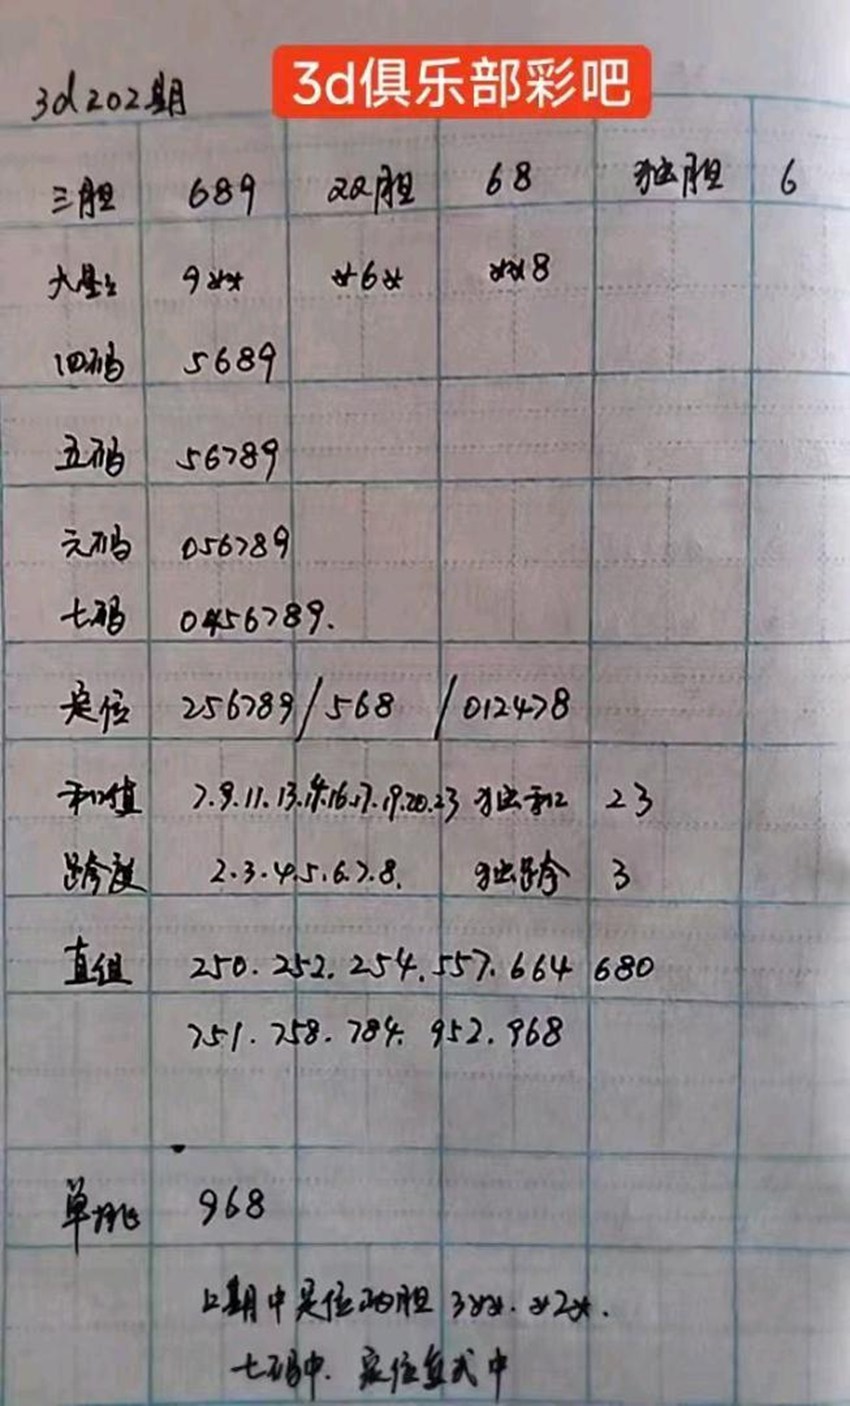 3d俱乐部彩吧
3d202期
三胆 689 双胆 68 独胆 6
9** *6* **8
四码 5689
五码 56789
六码 056789
七码 0456789.
定位 256789/568/012478
和值 7.9.11.13.14.16.17.19.20.23 独和 23
跨度 2.3.4.5.6.7.8. 独跨 3
直组 250.252.254.557.664 680
751.758.784.952.968
单挑 968
上期中定位两胆 3**.*2*.
七码中.定位复式中